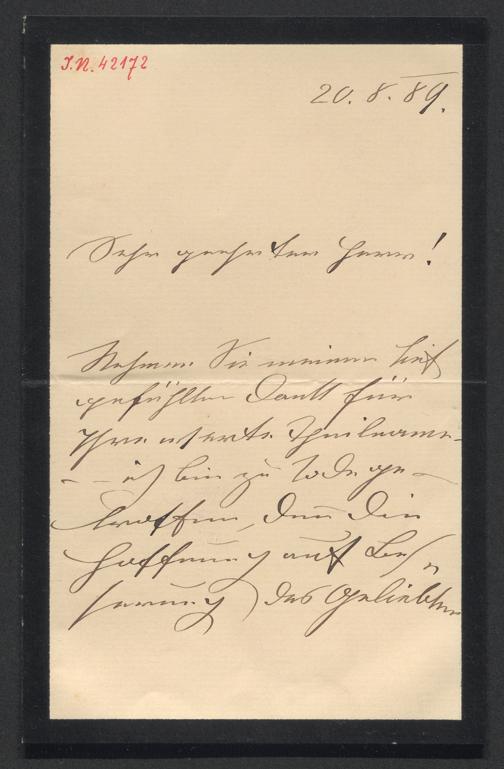 I.N. 42172
20. 8. 89.
Sehr geehrter Herr!
Nehmen Sie meinen tief
gefühlten Dank für
Ihre werte Theilname
– – ich bin zu Tode ge-
troffen, denn die
Hoffnung auf Bes-
serung des Geliebten